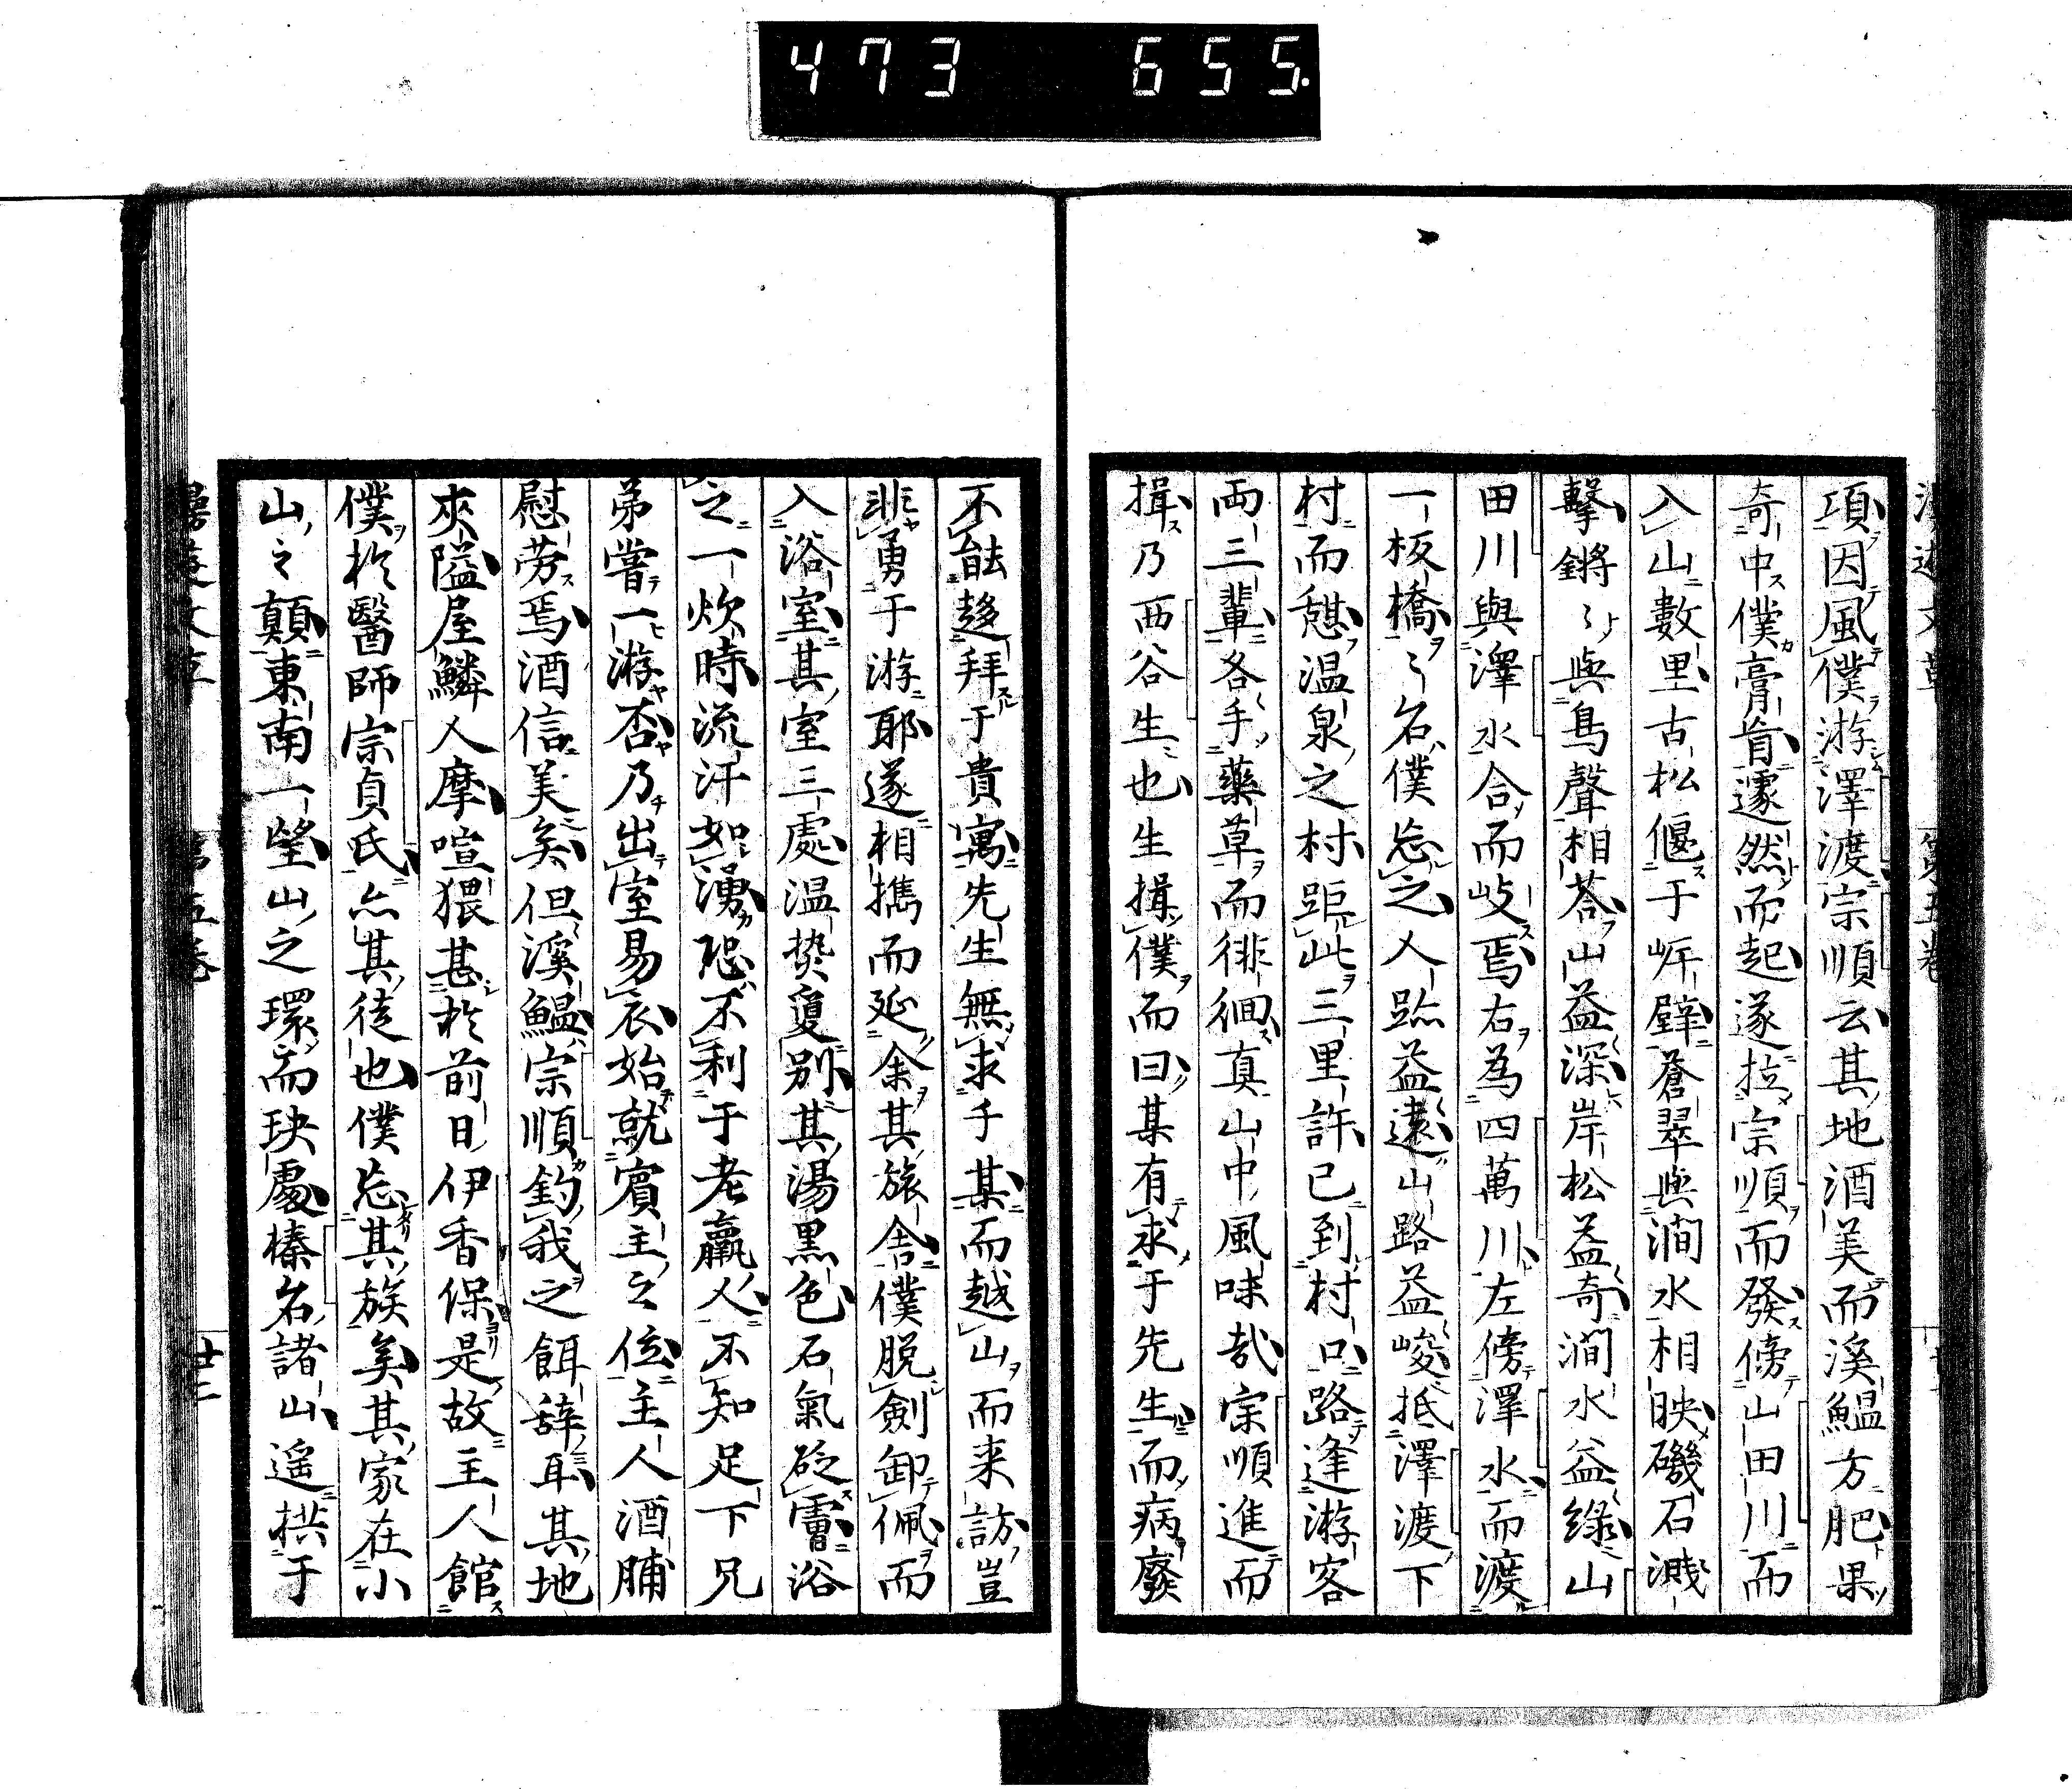 473 655.
項因風僕游澤渡宗順云其地酒美而溪鰛方肥果
奇中僕膏肓遽然而起遂拉宗順而發傍山田川而
入山數里古松偃于㟁壁蒼翠與澗水相映磯石濺
擊鏘〻與鳥聲相荅山益深岸松益奇澗水益綠山
田川與澤水合而岐焉右為四萬川左傍澤水而渡
一板橋〻名僕忘之人跡益遠山路益峻抵澤渡下
村而憩温泉之村距此三里許已到村口路逢游客
両三輩各手藥草而徘徊真山中風味哉宗順進而
揖乃西谷生也生揖僕而曰某有求于先生而病癈
不能趍拜于貴寓先生無求于某而越山而来訪豈
非勇于游耶遂相携而延余其旅舎僕脱劍卸佩而
入浴室其室三處温㷫夐別其湯黒色石氣砭膚浴
之一炊時流汗如湧恐不利于老羸人不知足下兄
弟嘗一游否乃出室易衣始就賓主之位主人酒脯
慰労焉酒信美矣但溪鰛宗順釣我之餌辞耳其地
夾隘屋鱗人摩喧猥甚於前日伊香保是故主人館
僕於醫師宗貞氏亦其徒也僕忘其族矣其家在小
山之顛東南一望山之環而玦處榛名諸山遥拱于
漫遊文草 第五巻 廿二